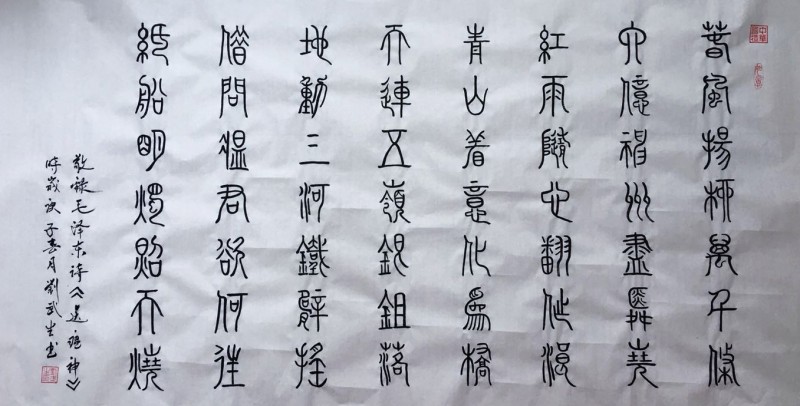 春風揚柳萬千條
六億神州盡舜堯
紅雨隨心翻作浪
青山着意化爲橋
天連五嶺銀鉏落
地動三河鐵臂搖
借問瘟君欲何往
紙船明燭照天燒
敬録毛泽东诗《送·瘟神》
时歲庚子春月劉武生书